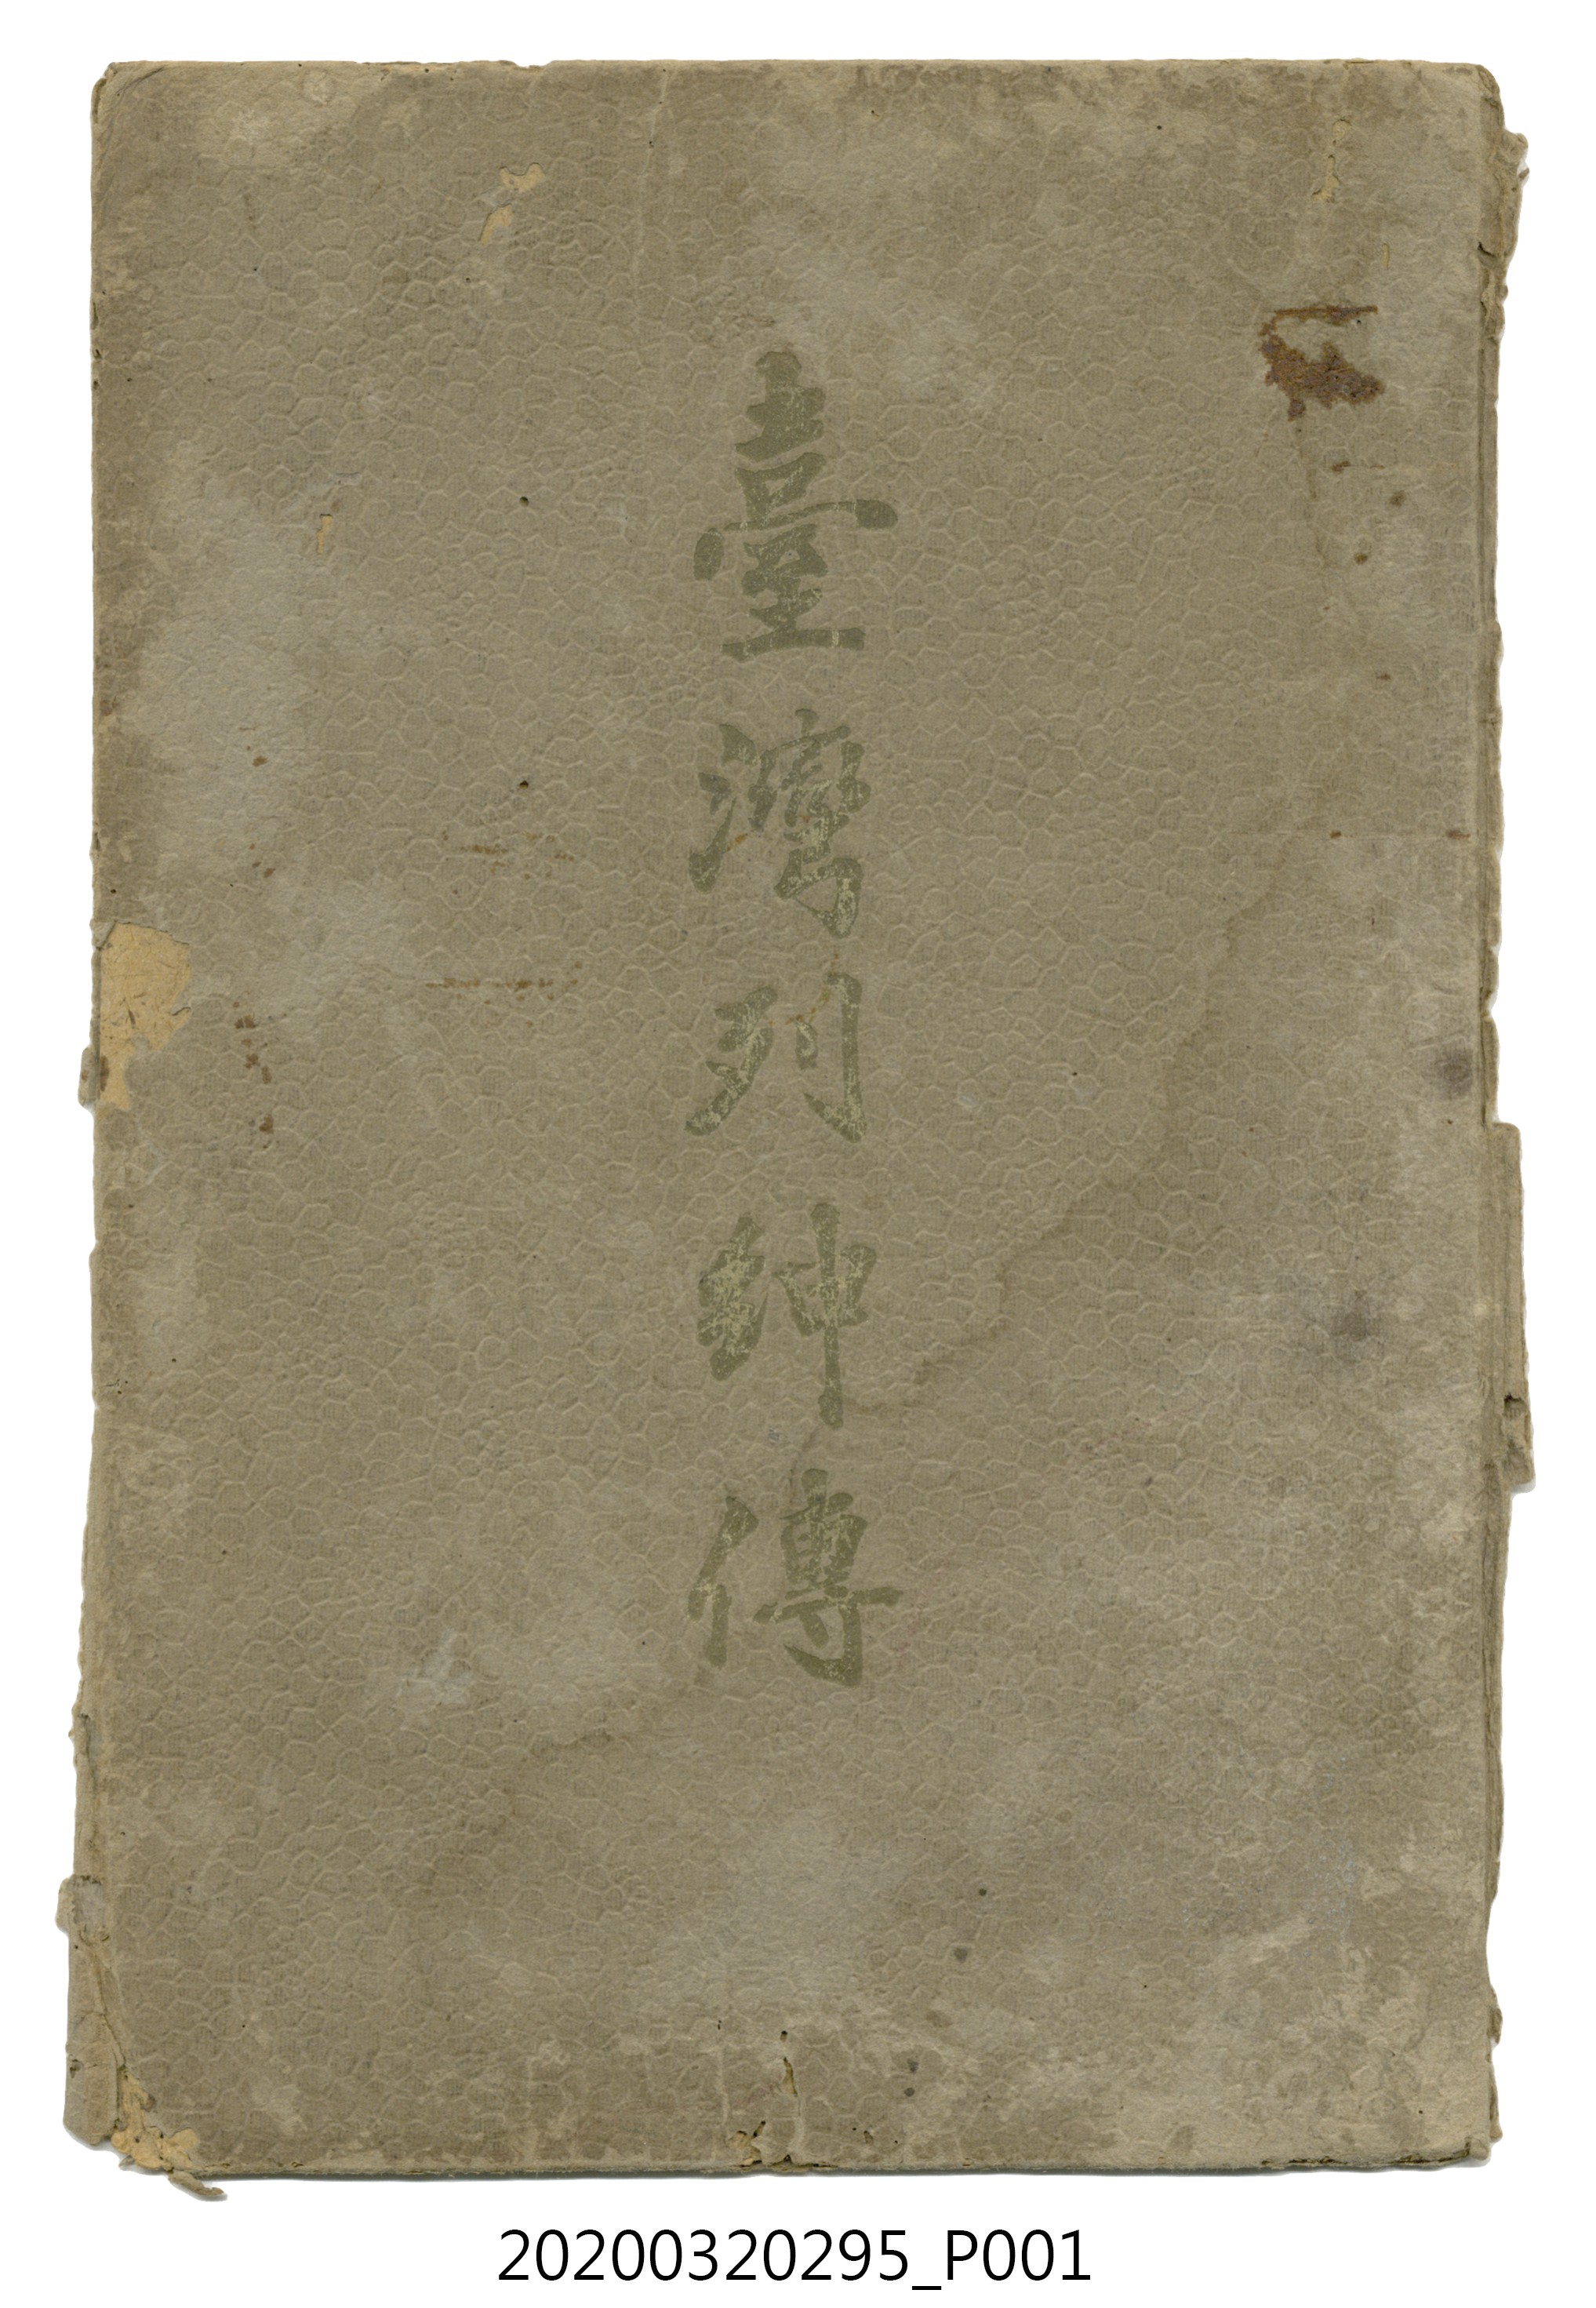 臺灣列紳傳
20200320295_P001